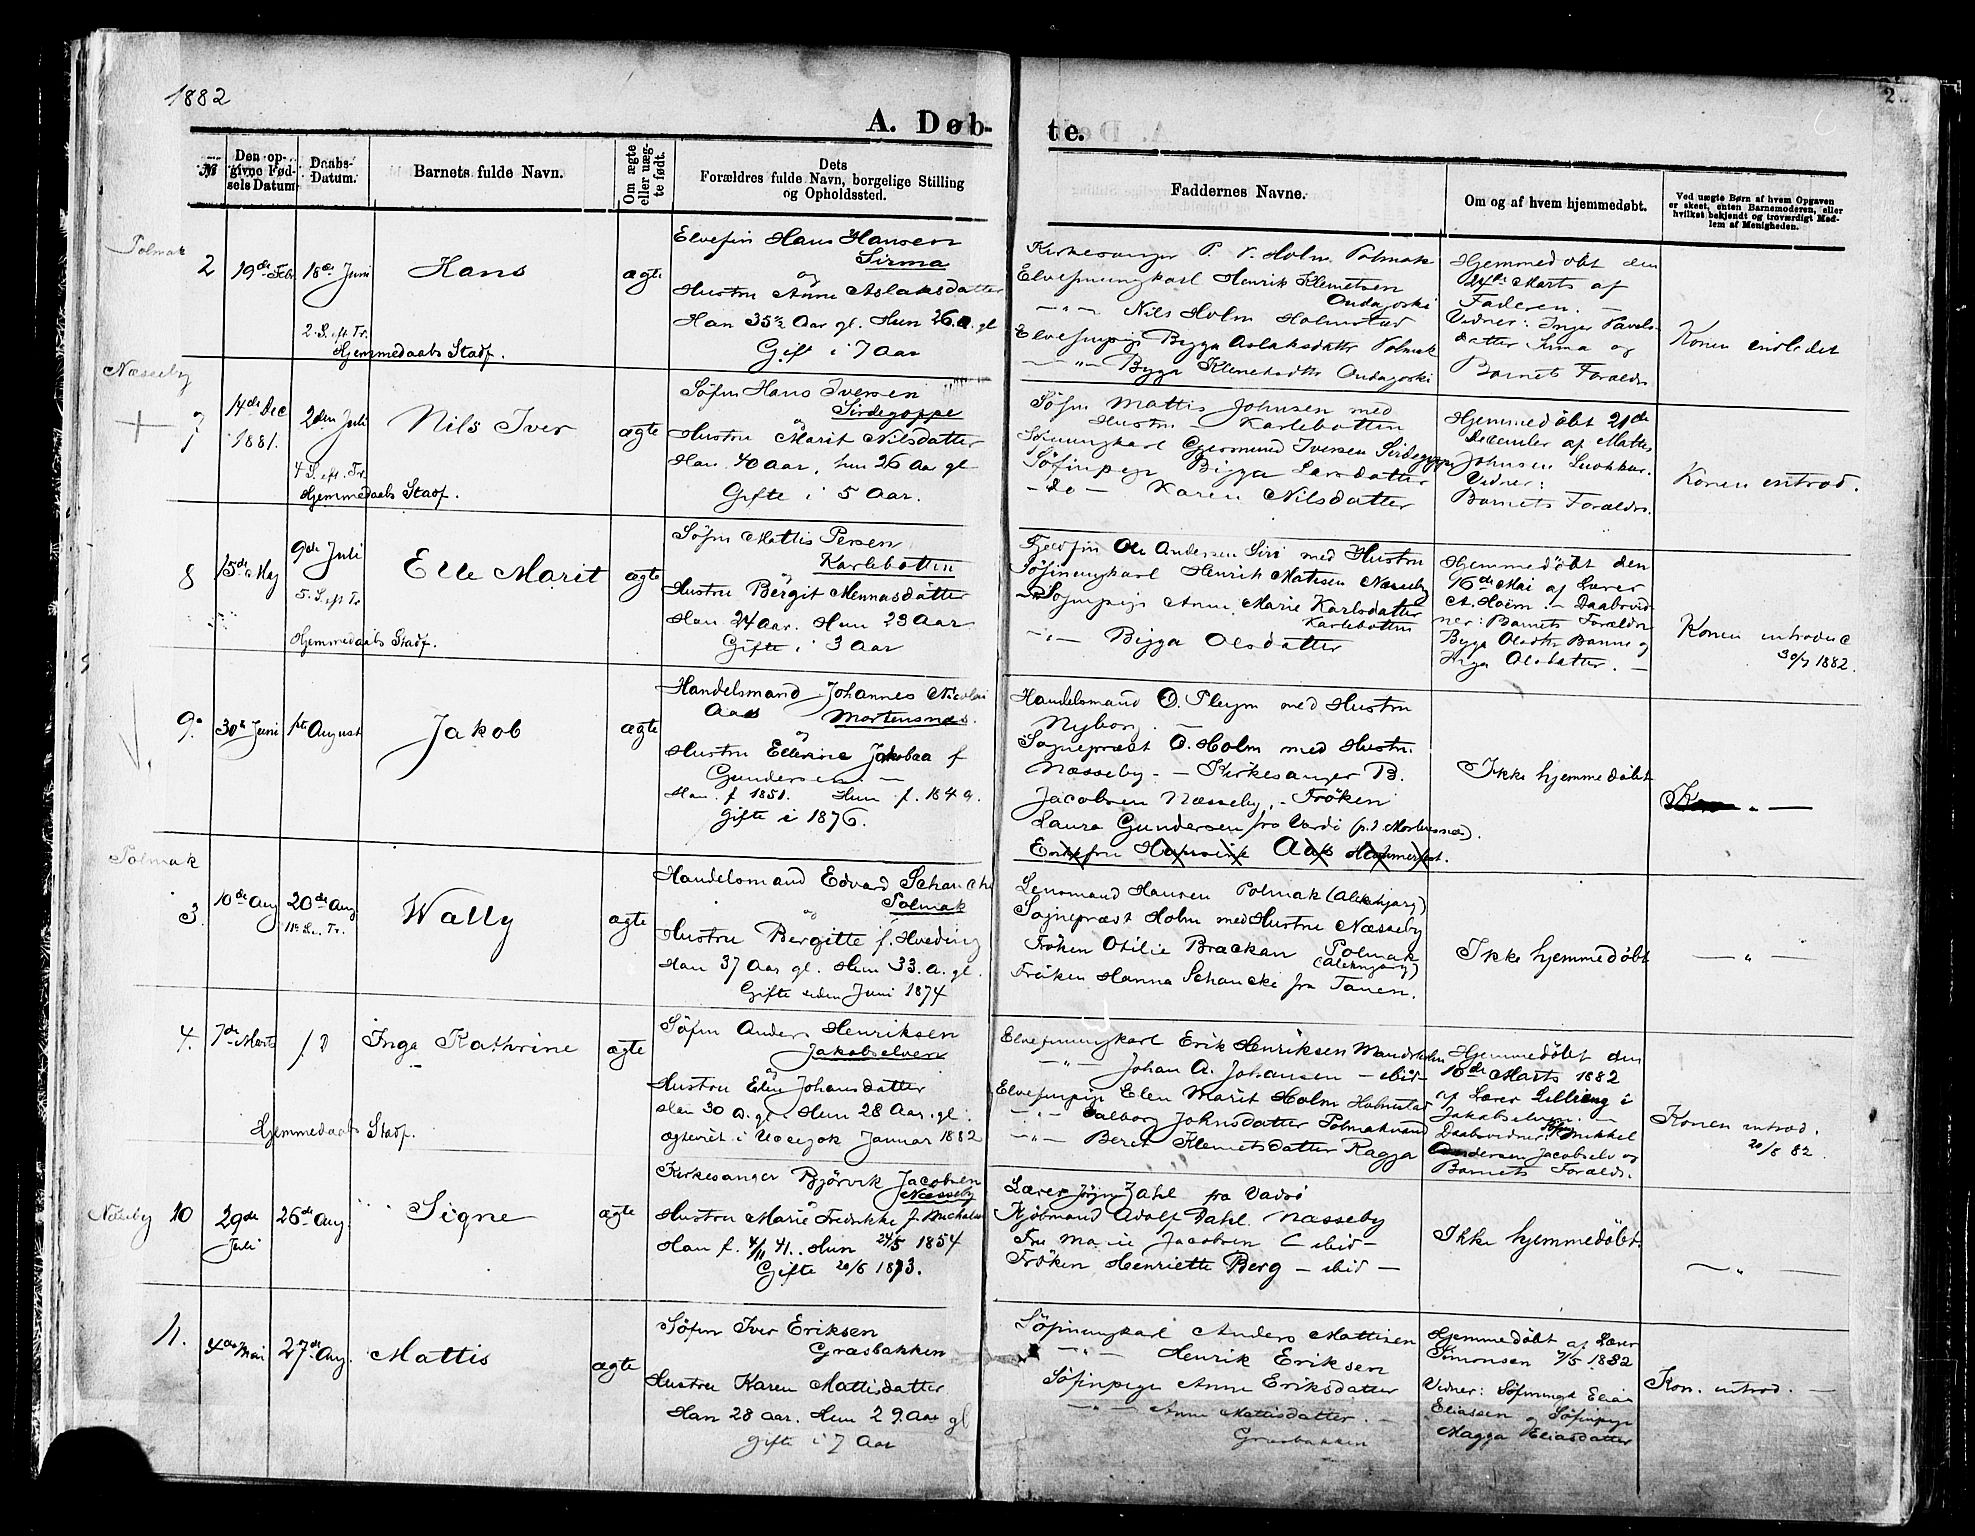 1882
2
A. Døb-
te.
№
Den op-
givne Fød-
sels Datum
Daabs-
Datum.
Barnets fulde Navn.
Om ægte
eller uæg-
te født.
Dets
Forældres fulde Navn, borgelige Stilling
og Opholdssted.
Faddernes Navne.
Om og af hvem hjemmedøbt.
Ved uægte Børn af hvem Opgaven
er skeet, enten Barnemoderen, eller
hvilket bekjendt og troværdigt Med-
lem af Menigheden.
Polmak
2
19de Febr
18de Juni
2. S. eft. Tr.
Hjemmedaabs Stadf.
Hans
ægte
Elvefin Hans Hansen
Sirma
og
Hustru Anne Aslaksdatter
Han 35½ Aar gl. Hun 26. a. gl
Gift i 7 Aar
Kirkesanger P. V. Holm Polmak
Elvefinungkarl Henrik Klemetsen
— " — Nils Holm Holmstad
Elvefinpige Bigga Aslaksdatter Polmak
— " — Bigga Klemetsdttr
Hjemmedøbt den
24de Marts af
Faderen. —
Vidner: Inger Pavels-
datter Sirma og
Barnets Forældre
Konen indledet
Næsseby
7
14de Dec
1881.
2den Juli
4 S. eft. Tr.
Hjemmedaabs Stadf.
Nils Iver
ægte
Søfin Hans Iversen
Sirdegoppe
og
Hustru Marit Nilsdatter
Han 40 Aar, hun 26 Aar gl
Gifte i 5 Aar.
Søfin Mattis Johnsen med
Hustru — Karlebotten
Søfinungkarl Gjermund Iversen Sirdegoppe
Søfinpige Bigga Larsdatter
— do — Karen Nilsdatter
Hjemmedøbt 21de
December af Mattis
Johnsen
Vidner:
Barnets Forældre.
Konen introd.
8
15de Maj
9de Juli
5. S. eft Tr
Hjemmedaabs Stadf.
Elle Marit
ægte
Søfin Mattis Persen
Karlebotten
og
Hustru Bergit Mennasdatter
Han 24 Aar. Hun 23 Aar
Gifte i 3 Aar
Fjeldfin Ole Andersen Siri med Hustru
Søfinungkarl Henrik Mathisen Næsseby
Søfinpige Anne Marie Karlsdatter
Karlebotten
— " — Bigga Olsdatter
Hjemmedøbt den
16de Mai af Lærer
A. Holm. — Daabsvid-
ner: Barnets Forældre
Bigga Olsdttr Banne og
Inga Olsdatter. —
Konen introduc
30/7 1882.
9.
30te Juni
1ste August
Jakob
ægte
Handelsmand Johannes Nicolai
Aas Mortensnæs.
og
Hustru Ellevine Jakobaa f
Gundersen. —
Han f 1851. Hun f. 1849.
Gifte i 1876.
Handelsmand O. Pleym med Hustru
Nyborg. —
Sognepræst O. Holm med Hustru
Næsseby. — Kirkesanger B.
Jacobsen Næsseby. — Frøken
Laura Gundersen fra Vardö (p.t. Mortensnæs).
Ikke hjemmedøbt
— " —
Polmak
3
10de Aug
20de Aug
11te S. e. Tr.
Wally
ægte
Handelsmand Edvard Schancke
Polmak
og
Hustru Bergitte f. Hveding
Han 37 Aar gl. Hun 33. a. gl.
Gifte siden Juni 1874
Lensmand Hansen Polmak (Aleknjarg)
Sognepræst Holm med Hustru Næsseby
Frøken Otilie Brackan Polmak
(Aleknjarg)
Frøken Hanna Schancke fra Tanen.
Ikke hjemmedøbt
— " —
4.
7de Marts
Inga Kathrine
Hjemmedaabs Stadf.
ægte
Søfin Anders Henriksen
Jakobselven
og
Hustru Elen Johansdatter
Han 30 a. gl. Hun 28 Aar. gl.
ægteviet i Utsjok Januar 1882
Elvefinungkarl Erik Henriksen
— " — Johan A. Johansen — ibid —
Elvefinpige Elen Marit Holm Holmstad
— " — Salborg Johnsdatter Polmakvand
— " — Beret Klemetsdatter Ragja
Hjemmedøbt den
10de Marts 1882
af Lærer Lilleeng i
Jakobselven. —
Daabsvidner: Søfin Mikkel
Andersen Jacobselv og
Barnets Forældr.
Konen introd.
20/8 82.
Næsseby
10
29de
Juli
26de Aug
Signe
ægte
Kirkesanger Bjørvik Jacobsen
Næsseby
Hustru Marie Fredrikke f. Michalsen
Han f. 4/11 41. Hun 24/5 1854
Gifte 20/8 1873.
Lærer Jørgen Zahl fra Vadsö
Kjøbmand Adolf Dahl. Næsseby
Fru Marie Jacobsen — ibid —
Frøken Henriette Berg — ibid —
Ikke hjemmedøbt
— " —
11.
4de Mai
27de Aug.
Mattis
ægte
Søfin Iver Eriksen
Græsbakken
Hustru Karen Mattisdatter
Han 28 aar. Hun 29 Aar gl
gifte i 7 Aar
Søfinungkarl Anders Mattisen
— " — Henrik Eriksen
Søfinpige Anne Eriksdatter
— " — Anne Mattisdatter. —
Græsbakken
Hjemmedøbt af Lærer
Simonsen 7/5 1882
Vidner: Søfinungk Elias
Eliassen og Søfinpige
Magga Eliasdatter
Kon. introd. —